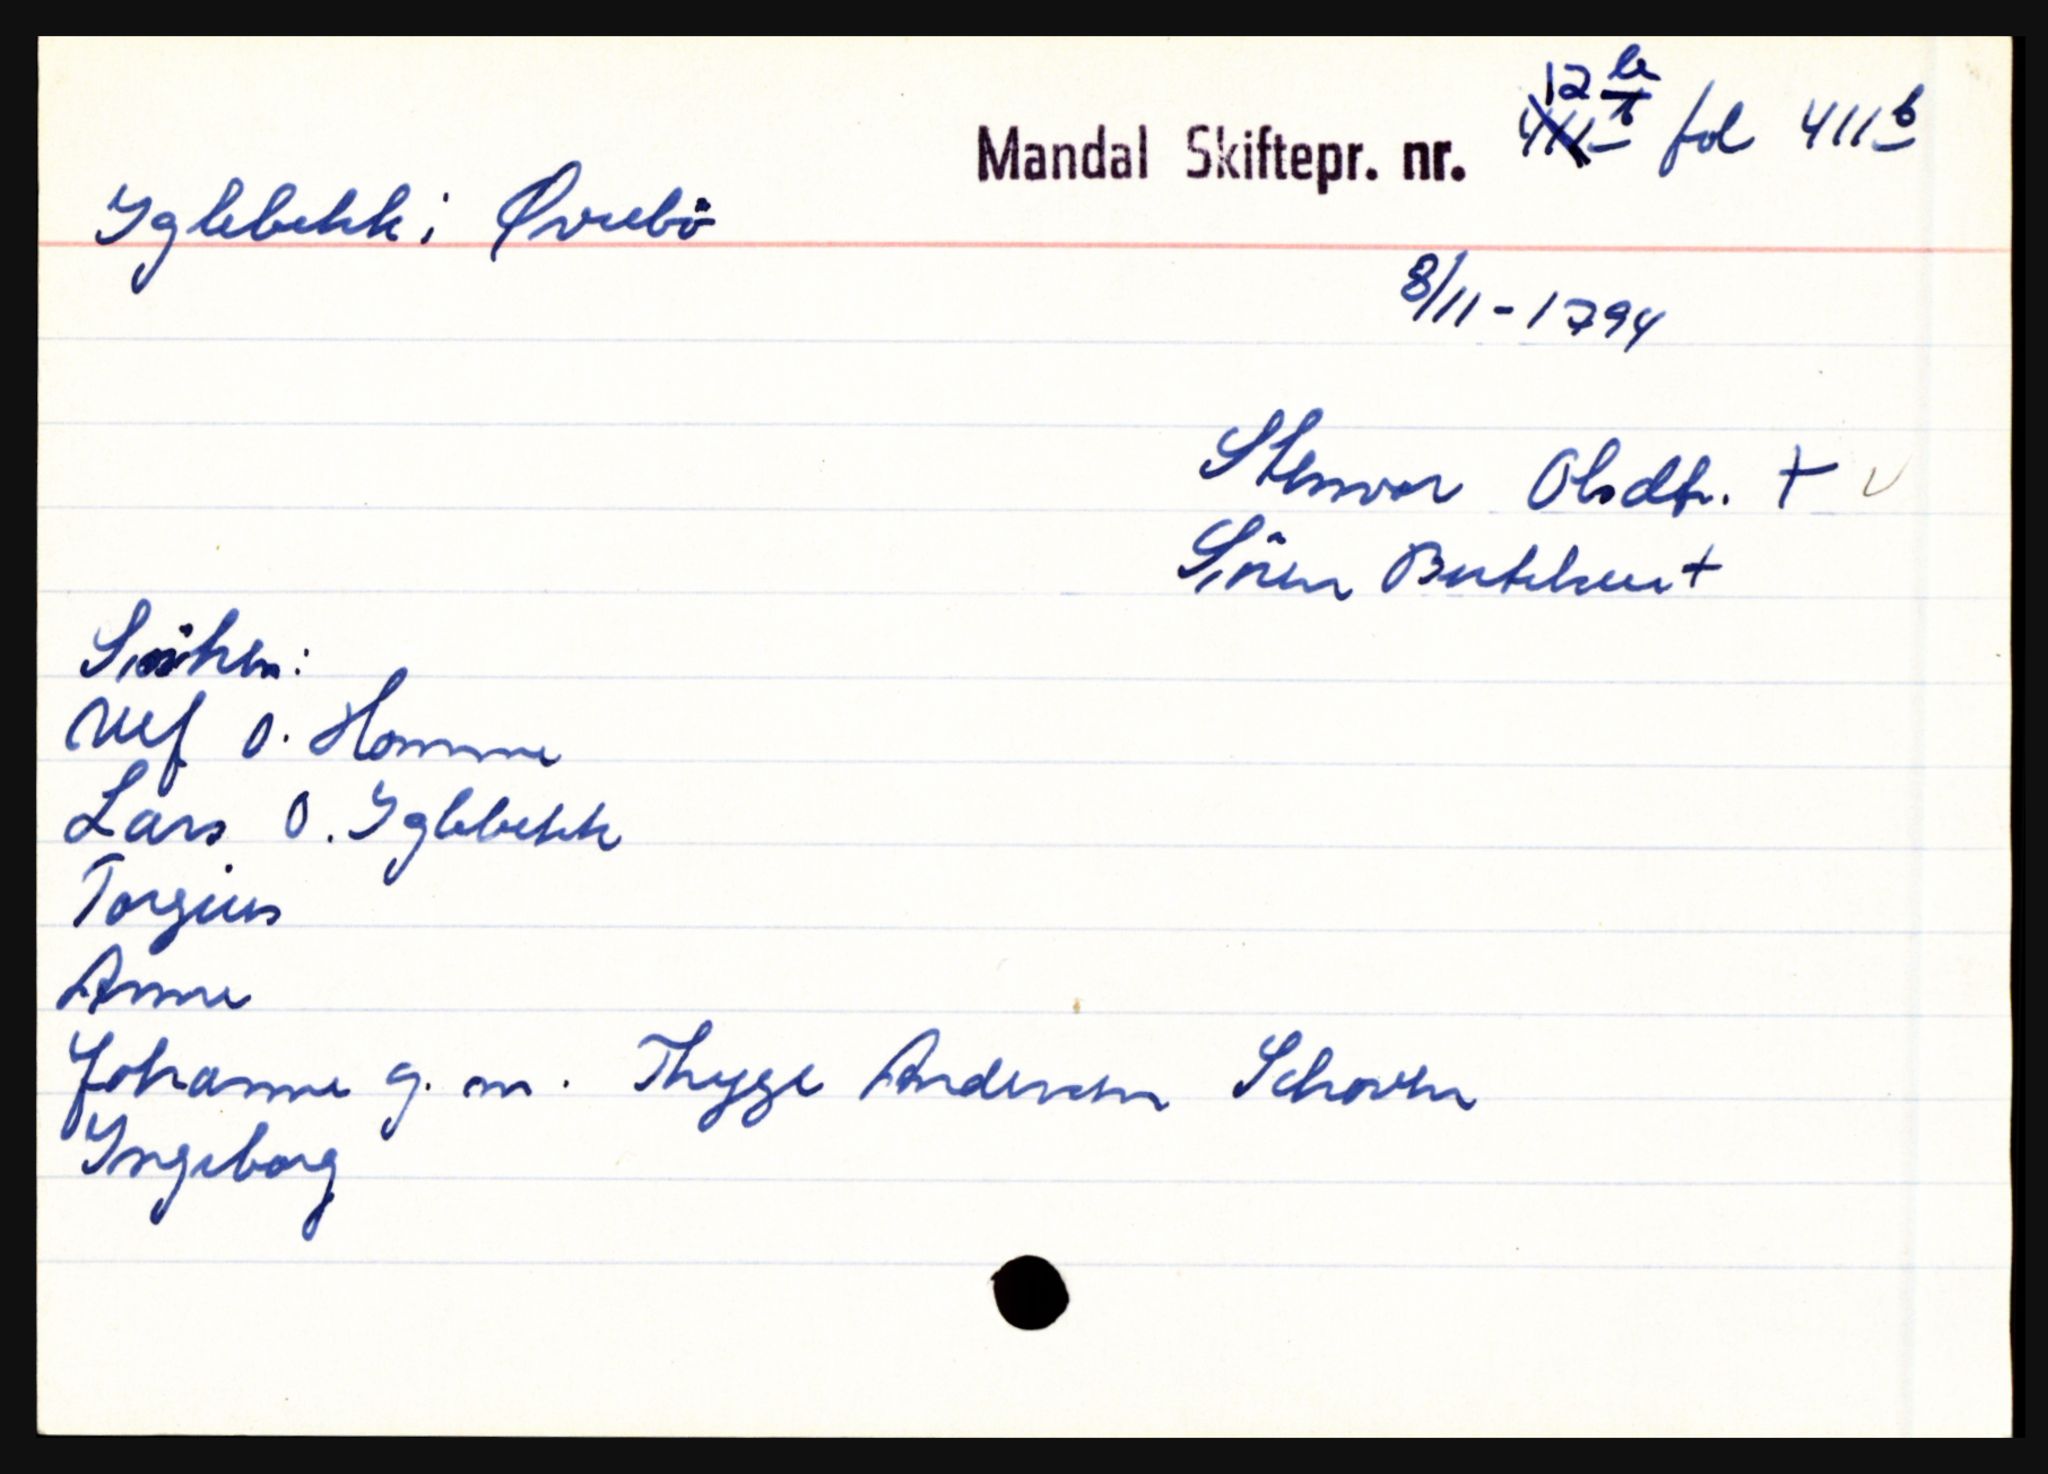 12 b
Mandal Skiftepr. nr. fol 411 b
Iglebekk i Øvrebö
8/11 - 1794
Stenvor Olsdtr. +
Sören Bertelsen +
Söskn:
Ulef O. Homme
Lars O. Iglebekk
Torgius
Anne
Johanne g. m. Thygge Andersen Schoven
Ingeborg